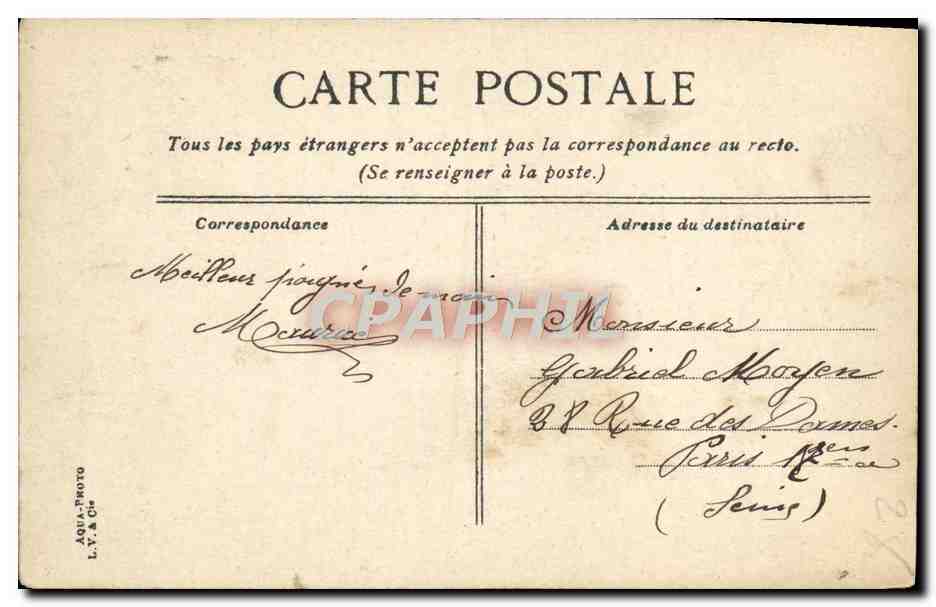 CARTE POSTALE
Tous les pays étrangers n'acceptent pas la correspondance au recto.
(Se renseigner à la poste.)
Correspondance
Meilleur poignée de main
Maurice
Adresse du destinataire
Monsieur
Gabriel Moyen
28 Rue des Dames.
Paris
(Seine)
AQUA-PHOTO
L. V. & Cie
CPAPHIL